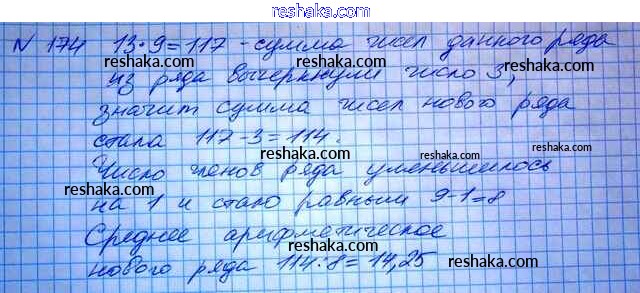 reshaka.com
N 174 13·9=117 - сумма чисел данного ряда
reshaka.com reshaka.com
из ряда вычеркнули число 3,
reshaka.com reshaka.com
значит сумма чисел нового ряда
reshaka.com
стала 117-3=114.
reshaka.com reshaka.com
Число членов ряда уменьшилось
reshaka.com reshaka.com
на 1 и стало равным 9-1=8
Среднее арифметическое
reshaka.com reshaka.com
нового ряда 114:8=14,25
reshaka.com reshaka.com